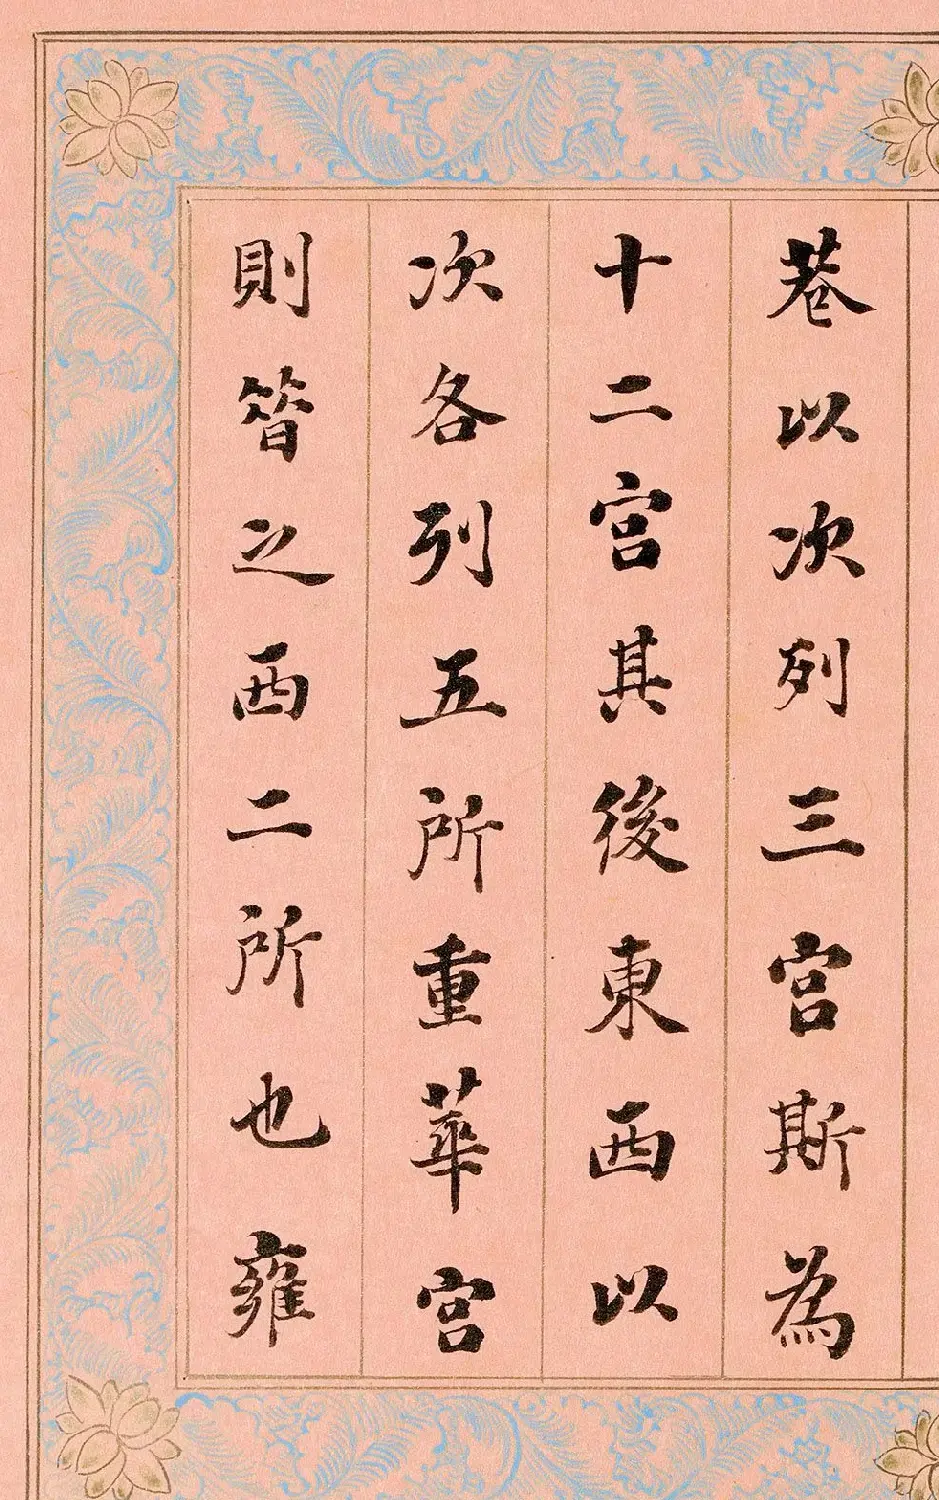 巷以次列三宮斯為
十二宮其後東西以
次各列五所重華宮
則昔之西二所也雍